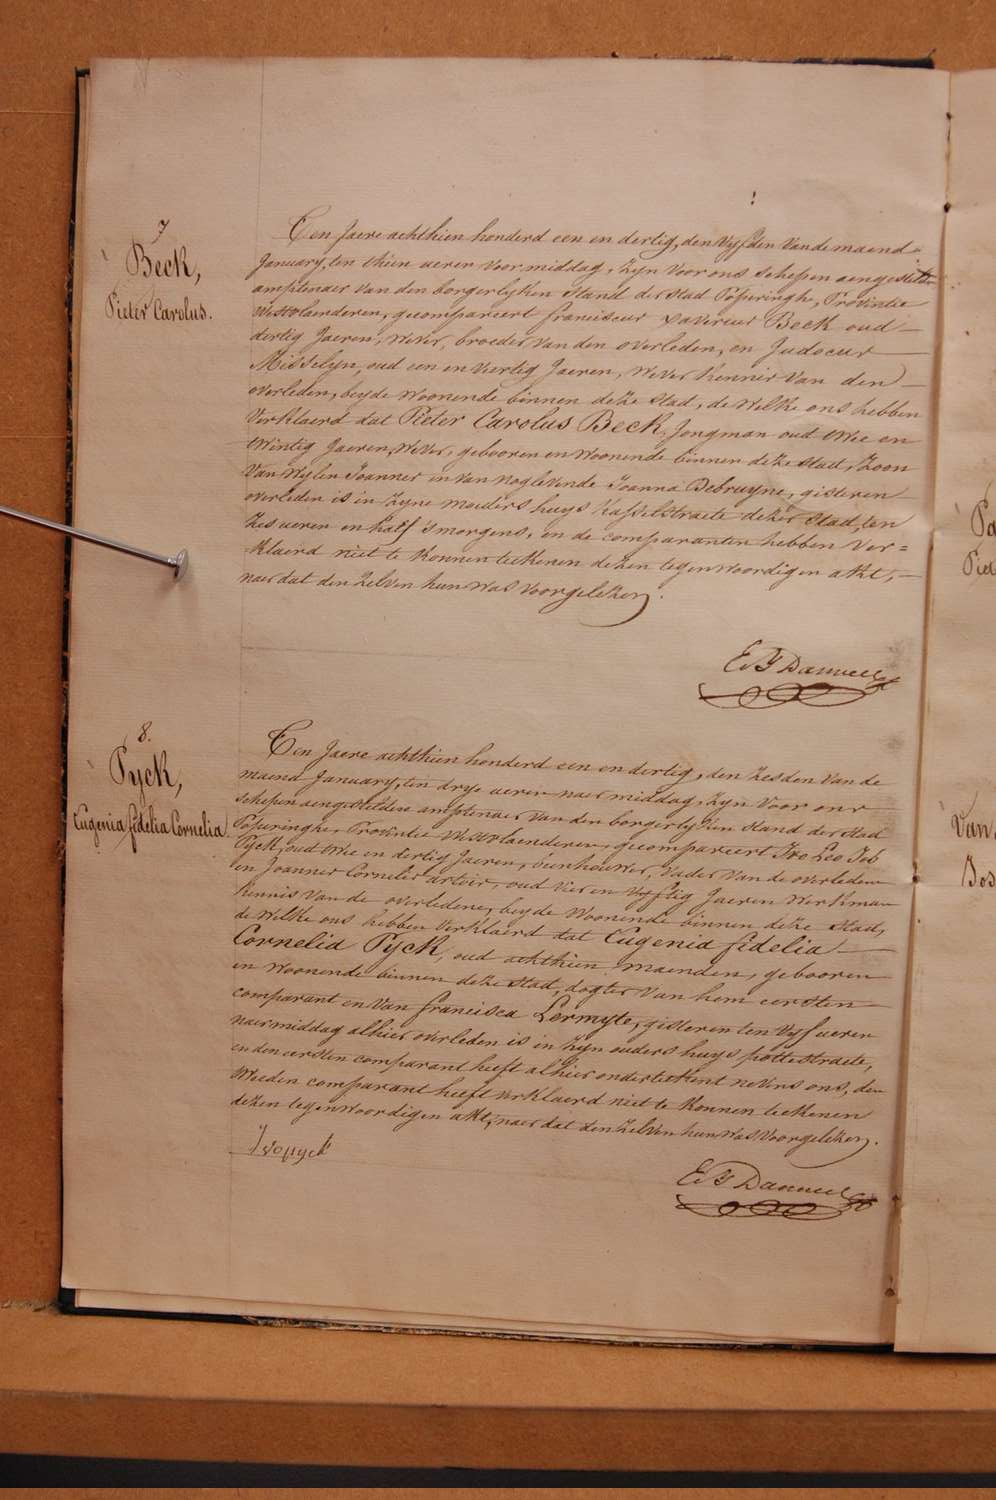 7
Beck,
Pieter Carolus.
Ten Jaere achthien honderd een en dertig, den Vyfden Vande maend
January, ten thien ueren Voormiddag, Zyn Voor ons Schepen aengestelden
amptenaer Van den borgerlyken Stand der Stad Poperinghe, Provintie
Westvlaenderen, gecompareert franciscus Xaverius Beck oud
dertig Jaeren, Wever, broeder Van den overleden, en Judocus
Misselyn, oud een en Veertig Jaeren, Wever Kennis Van den
overleden, beyde Woonende binnen deze Stad, de Welke ons hebben
Verklaerd dat Pieter Carolus Beck, Jongman oud twee en
twintig Jaeren, Wever, gebooren en Woonende binnen deze Stad, Zoon
Van Wylen Joannes en Van noglevende Joanna Debruyne, gisteren
overleden is in Zyne moeders huys Kasselstraete dezer Stad, ten
Zes ueren en half 'smorgens, en de comparanten hebben Ver=
klaerd niet te Konnen teekenen dezen tegenwoordigen akt,
naer dat den Zelven hun Was Voorgelezen.
8.
Pyck,
Eugenia fidelia Cornelia.
Ten Jaere achthien honderd een en dertig, den Zesden Van de
maend January, ten drye ueren naermiddag, Zyn Voor ons
Schepen aengestelden amptenaer Van den borgerlyken Stand der Stad
Poperinghe, Provintie Westvlaenderen, gecompareert Ivo Leo Job
Pyck, oud twee en dertig Jaeren, beenhouwer, Vader Van de overledene
en Joannes Cornelis artoir, oud Vier en Vyftig Jaeren Werkman
Kennis Van de overledene, beyde Woonende binnen deze Stad,
de Welke ons hebben Verklaerd dat Eugenia fidelia
Cornelia Pyck, oud achthien maenden, gebooren
en Woonende binnen deze Stad, dogter Van hem eersten
comparant en Van francisca Lermyte, gisteren ten Vyf ueren
naermiddag alhier overleden is in Zyn ouders huys pottestraete,
en den eersten comparant heeft alhier onderteekent nevens ons, den
tweeden comparant heeft verklaerd niet te Konnen teekenen
dezen tegenwoordigen akt, naer dat den Zelven hun Was Voorgelezen.
Ivo pyck